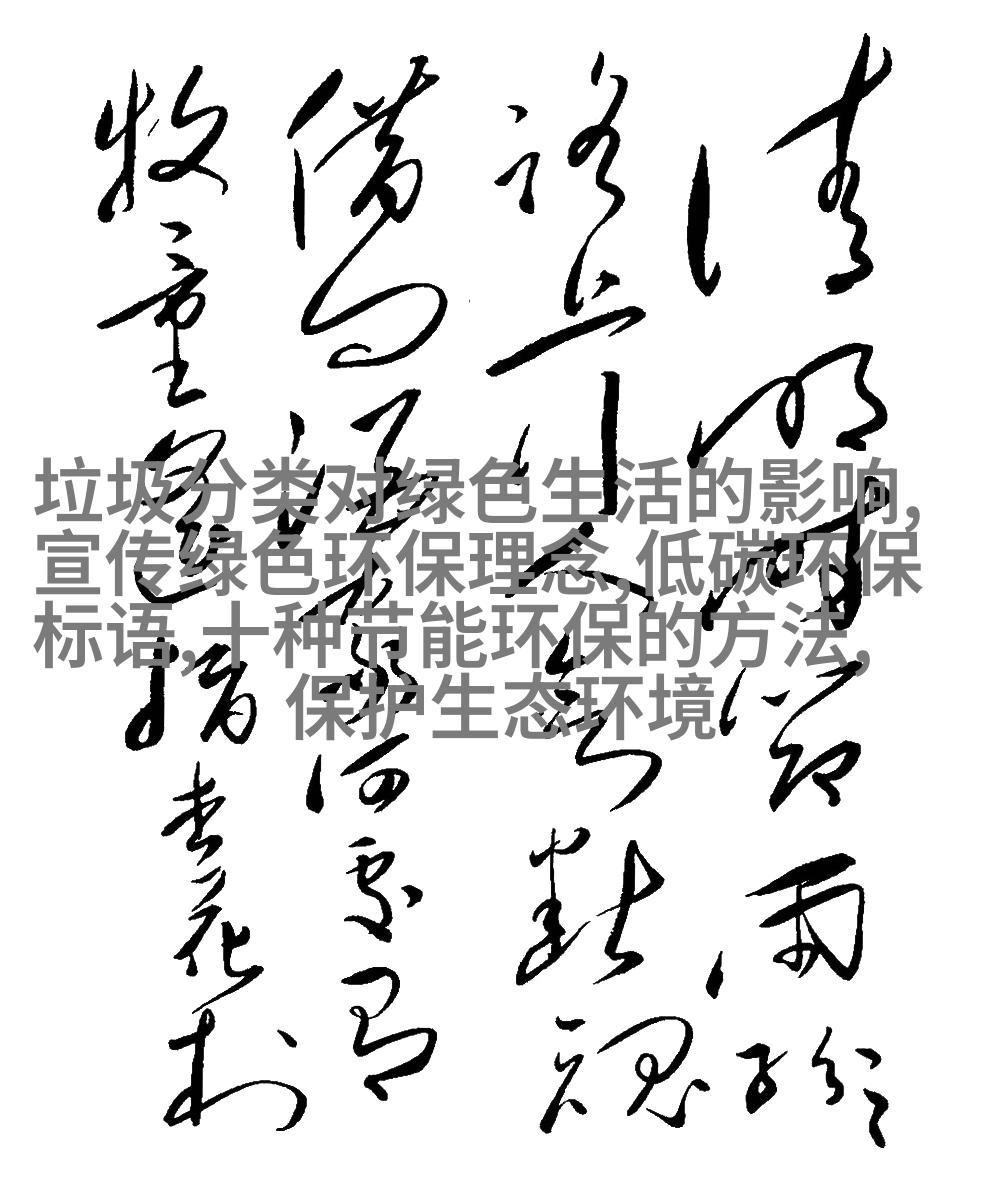 清明时节雨纷纷
路上行人欲断魂
借问酒家何处有
牧童遥指杏花村
垃圾分类对绿色生活的影响,
宣传绿色环保理念,低碳环保
标语,十种节能环保的方法,
保护生态环境